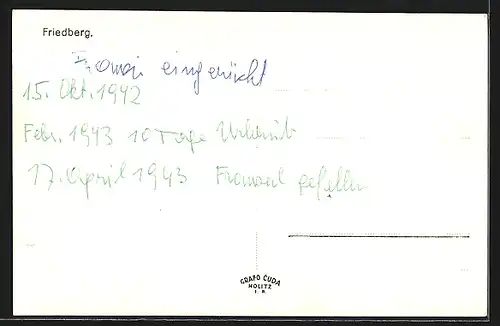 Friedberg.
Franzi eingerückt
15. Okt. 1942
Febr. 1943 10 Tage Urlaub
17. April 1943 Franzl gefallen
GRAFO ČUDA
HOLITZ
I. B.